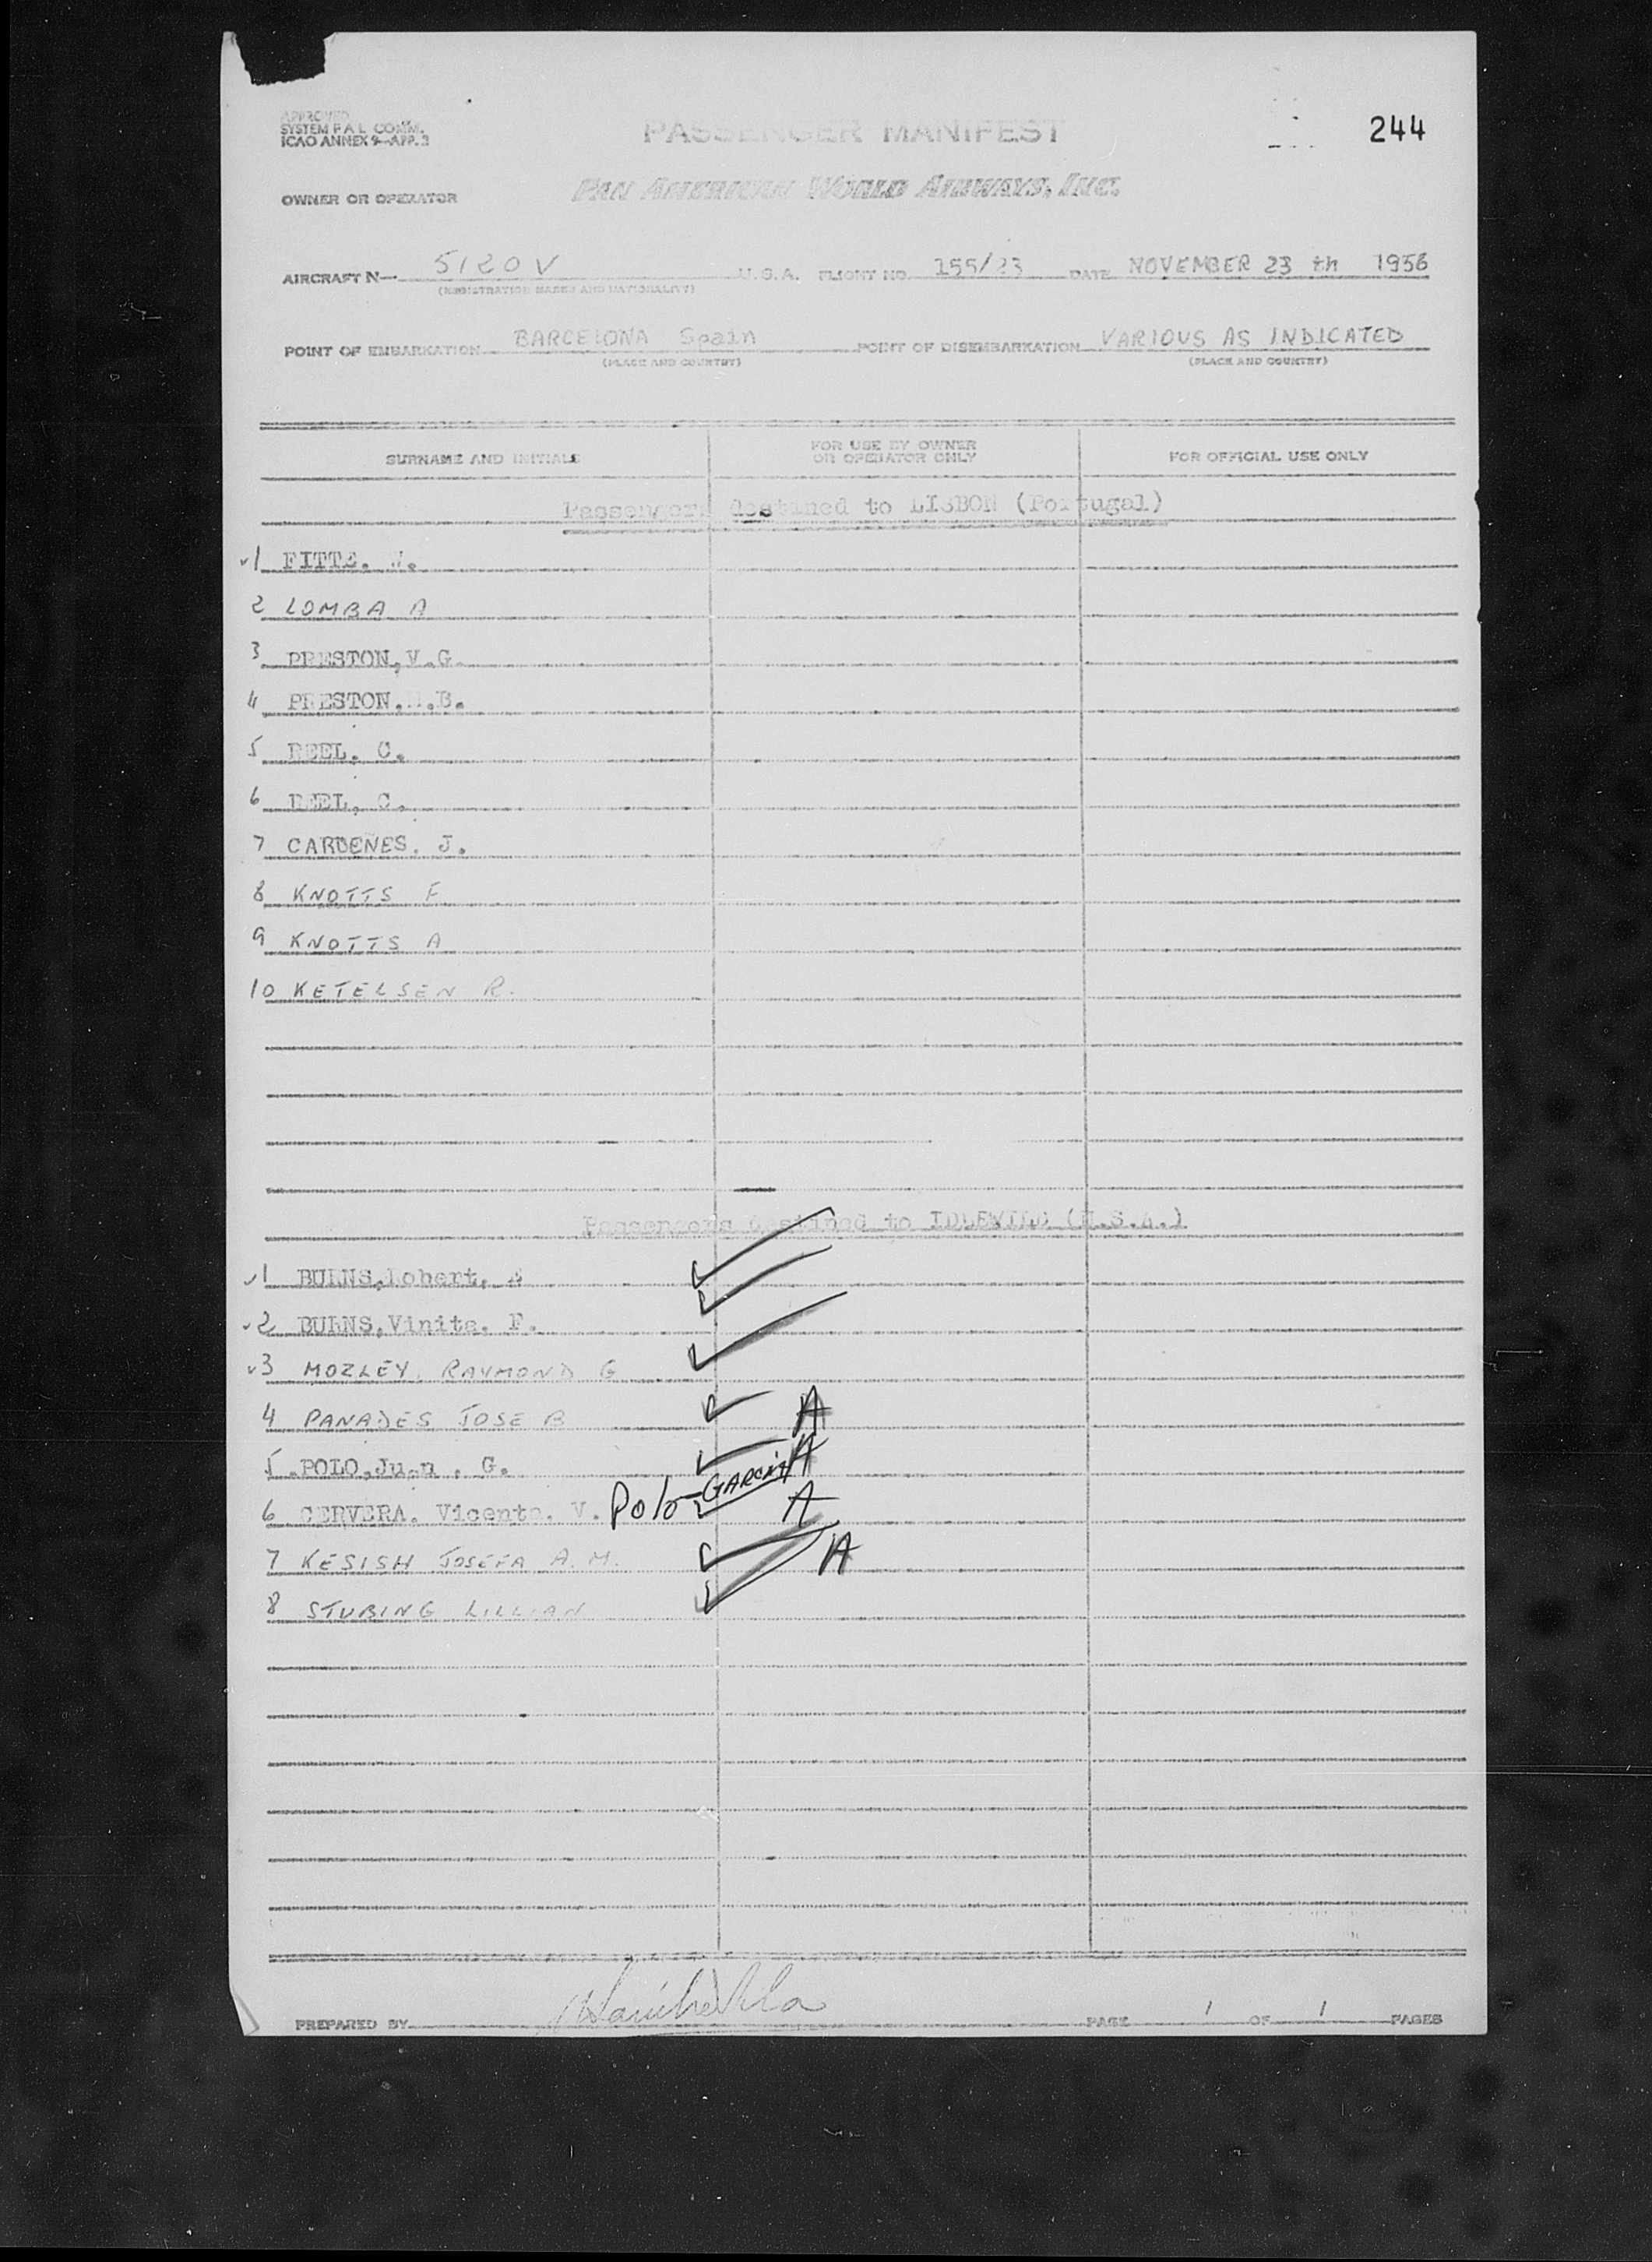 244
APPROVED
SYSTEM F A L COMM.
ICAO ANNEX 9—APP. 3
PASSENGER MANIFEST
OWNER OR OPERATOR PAN AMERICAN WORLD AIRWAYS, INC.
AIRCRAFT N— 5120V U.S.A. FLIGHT NO. 155/23 DATE NOVEMBER 23 th 1956
(REGISTRATION MARKS AND NATIONALITY)
POINT OF EMBARKATION BARCELONA Spain POINT OF DISEMBARKATION VARIOUS AS INDICATED
(PLACE AND COUNTRY) (PLACE AND COUNTRY)
SURNAME AND INITIALS FOR USE BY OWNER OR OPERATOR ONLY FOR OFFICIAL USE ONLY
Passengers destined to LISBON (Portugal)
1 FITTE.
2 LOMBA A
3 PRESTON, V.G.
4 PRESTON. .B.
5 REEL. C.
6 REEL, C.
7 CARDENES. J.
8 KNOTTS F
9 KNOTTS A
10 KETELSEN R.
Passengers destined to IDLEWILD (U.S.A.)
1 BURNS, Robert,
2 BURNS, Vinita. F.
3 MOZLEY, RAYMOND G
4 PANADES JOSE B A
5 POLO, Juan . G. A
Polo-GARCIA
6 CERVERA. Vicente. V. A
7 KESISH JOSEFA A.M. A
8 STUBING LILLIAN
PREPARED BY PAGE 1 OF 1 PAGES